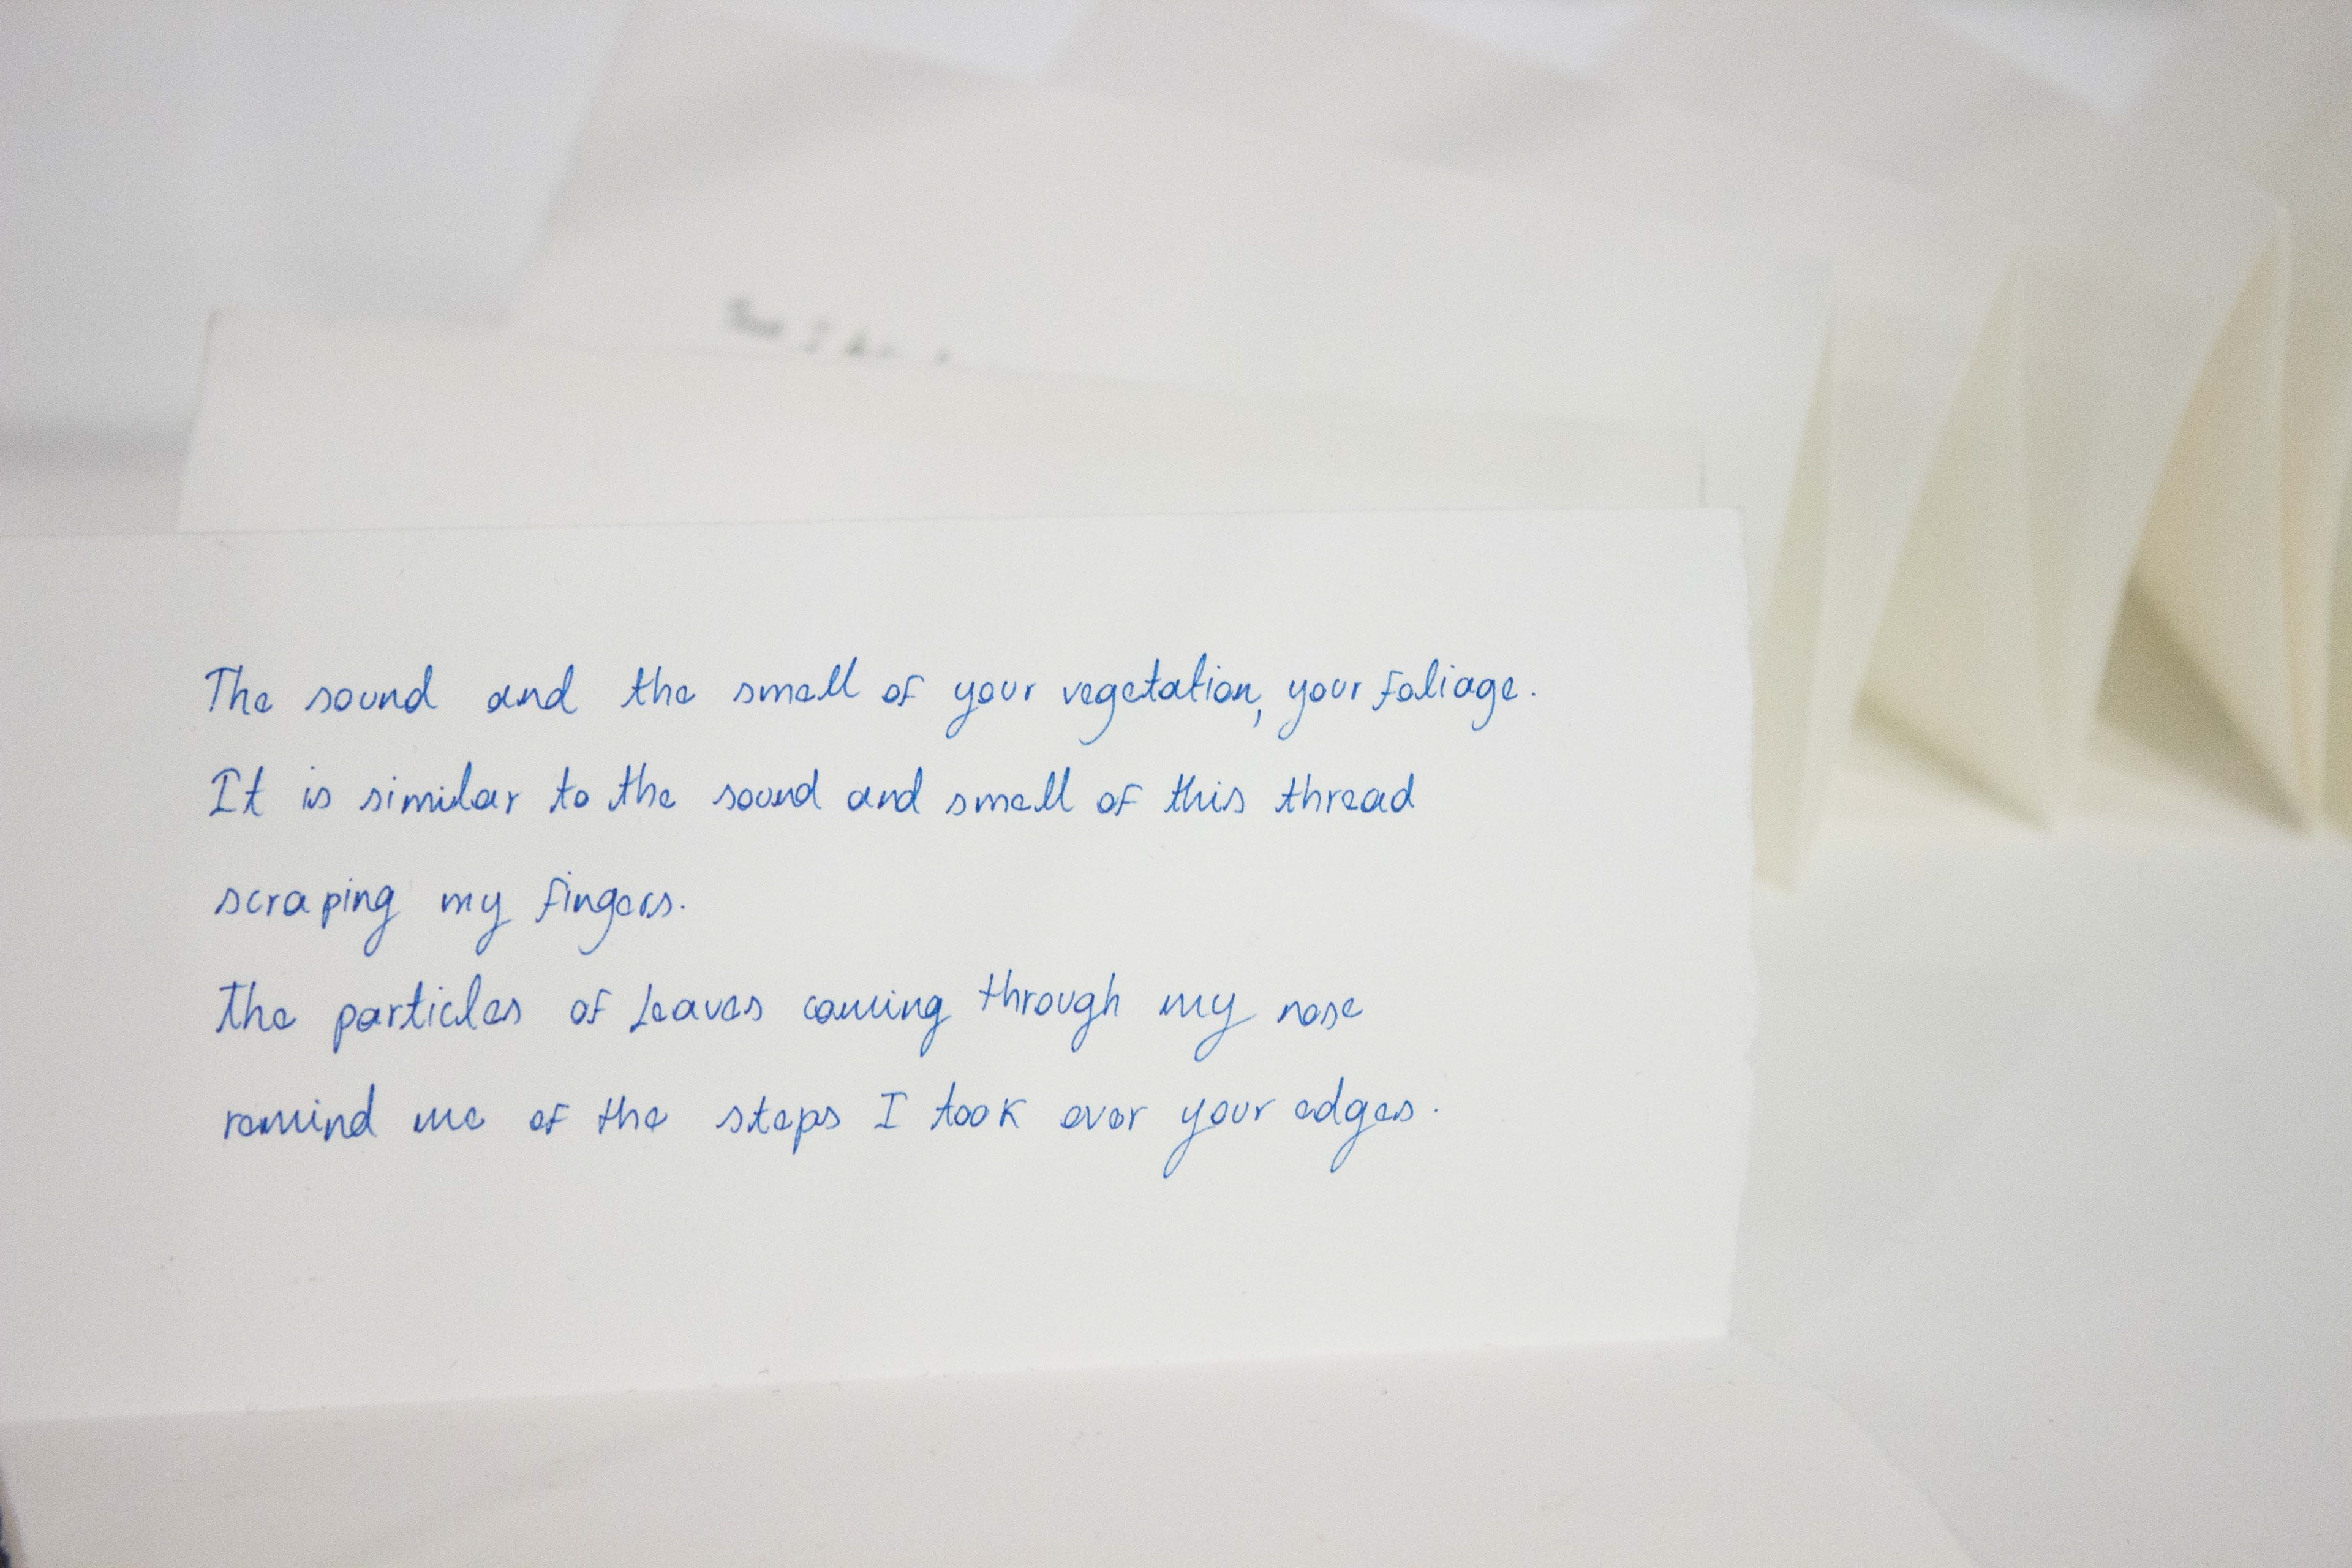 The sound and the smell of your vegetation, your foliage.
It is similar to the sound and smell of this thread
scraping my fingers.
The particles of leaves coming through my nose
remind me of the steps I took over your edges.